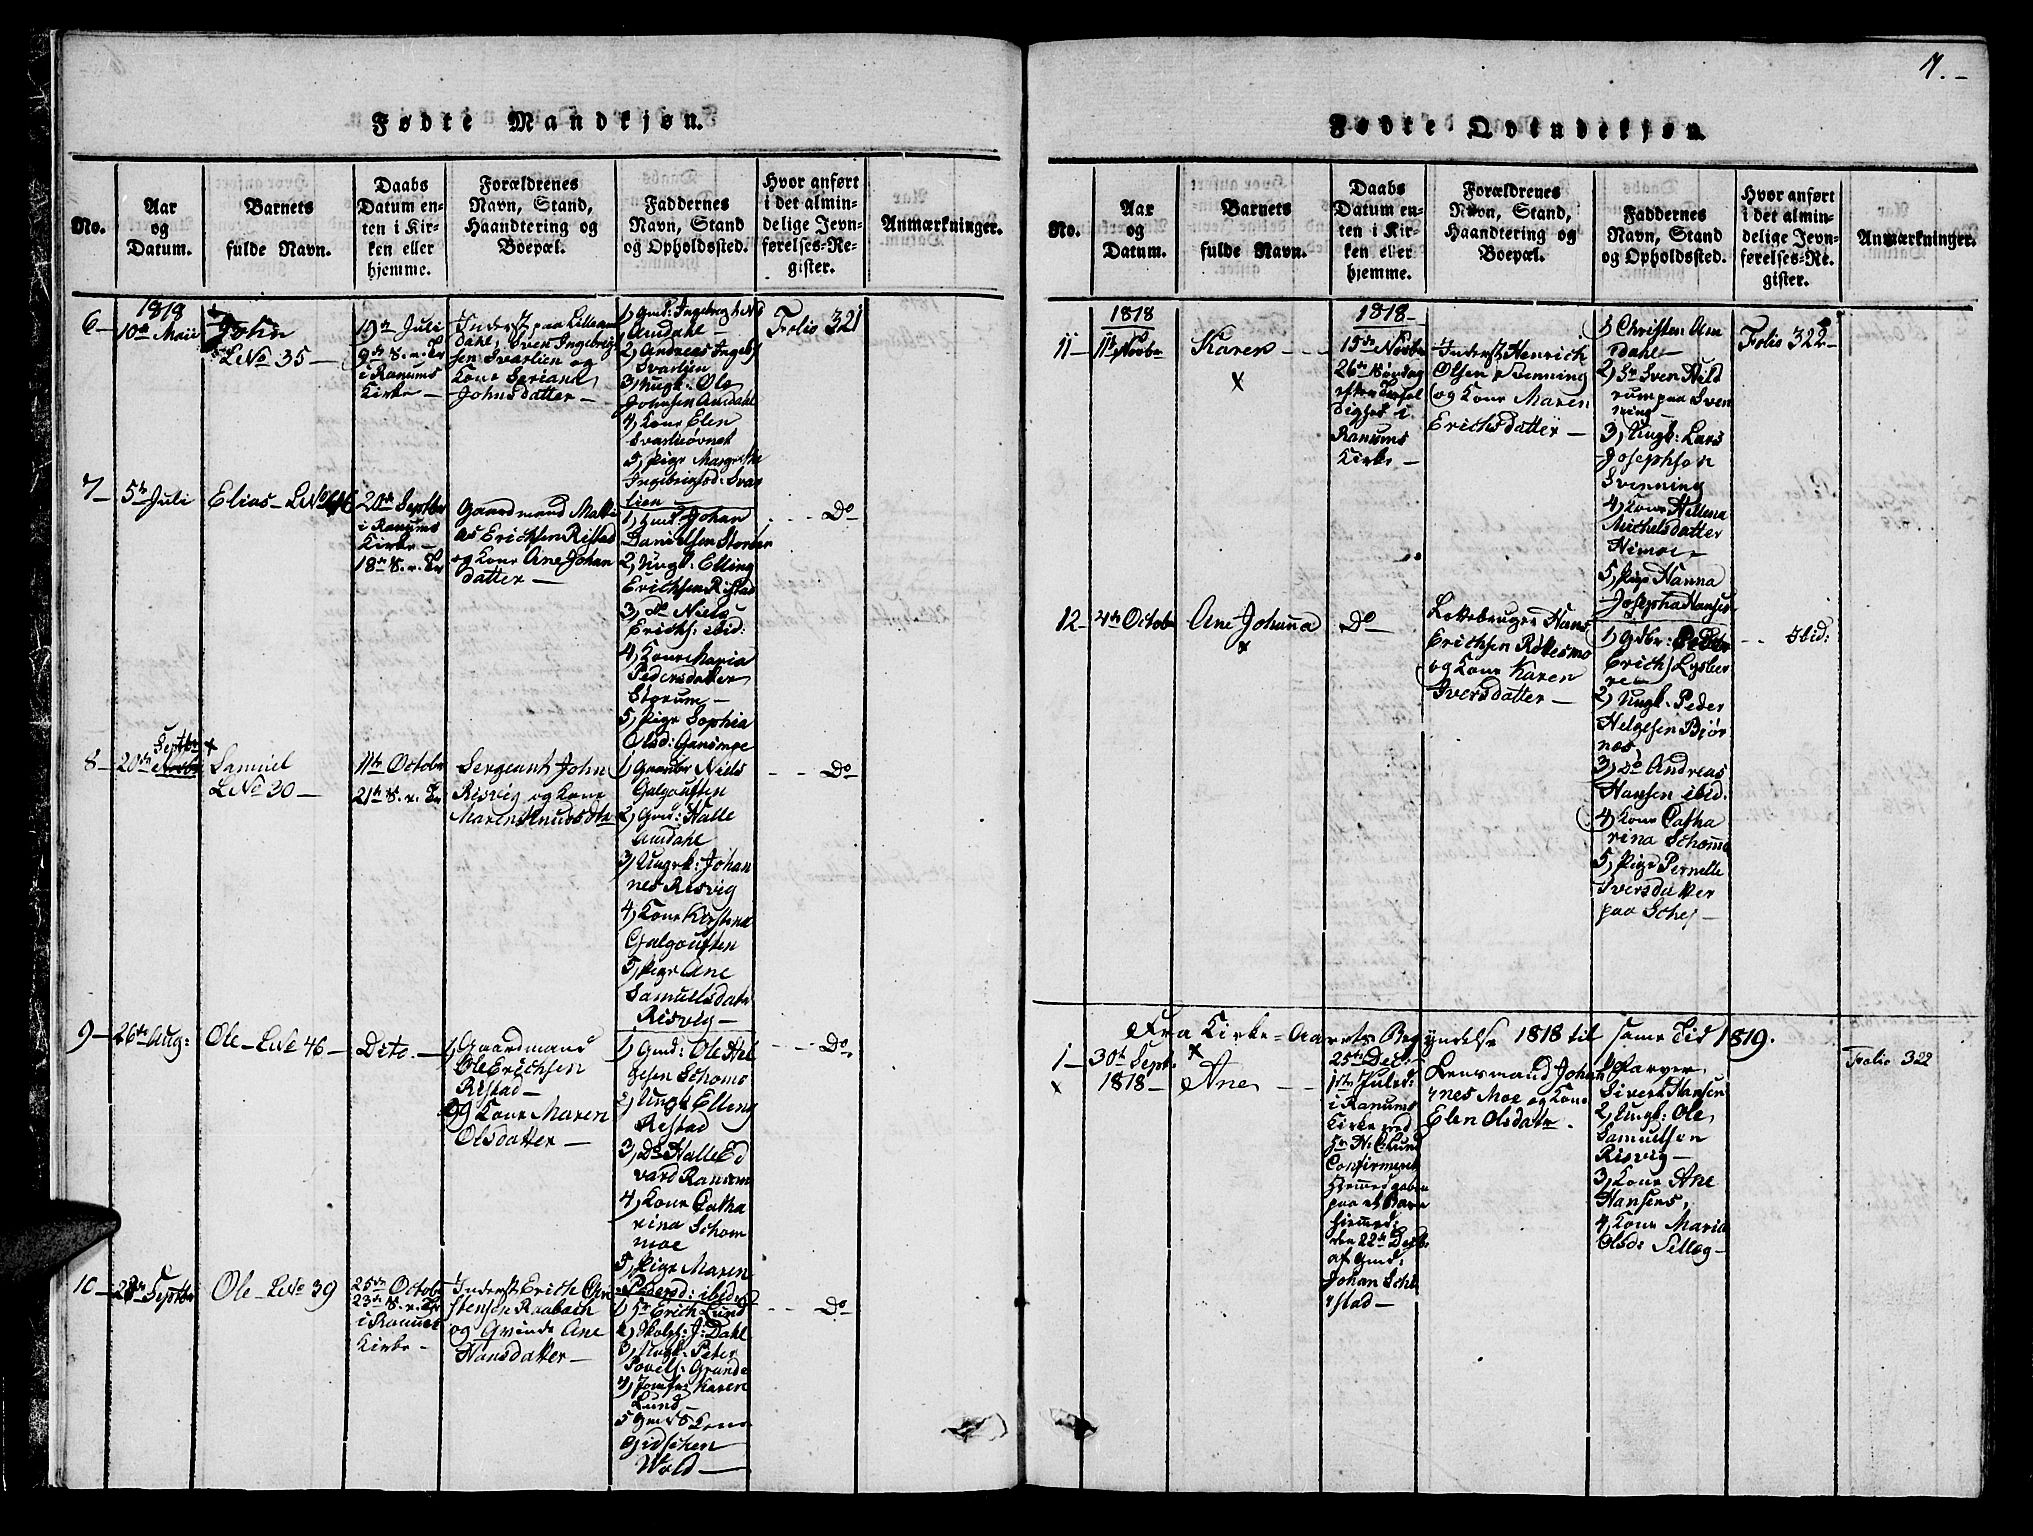 Fødte Mandkjøn.
No.
Aar
og
Datum.
Barnets
fulde Navn.
Daabs
Datum en-
ten i Kir-
ken eller
hjemme.
Forældrenes
Navn, Stand,
Haandtering og
Boepæl.
Faddernes
Navn, Stand
og Opholdssted.
Hvor anført
i det almin-
delige Jevn-
førelses-Re-
gister.
Anmærkninger.
1818
6 - 10de Maii
John
LNo 35 -
19de Juli
9de S. e. Tr
i Ranums
Kirke -
Inderst paa Lilleam
dahl, Sven Ingebrigt
sen Svarlien og
Kone Seriana
Johnsdatter -
Amdahl -
2, Andreas Ingeb
Svarlien
3, Ungk: Ole
Johnsen Amdahl
4, Kone Elen
5, Pige Margrethe
Ingebrigtsd: Svar
lien
Folio 321
7 - 5te Juli
Elias - LNo 46
20de Septbr
i Ranums
Kirke -
18de S. e. Tr
Gaardmand Matti
as Erichsen Ristad
og Kone Ane Johan
datter -
1, Gmd: Johan
Danielsen Storum
2, Ungk: Elling
Erichsen Ristad
3, Do Niels
Erichs: ibid:
4, Kone Maria
Pedersdatter
Storum -
5, Pige Sophia
Olsd: Gansmoe
Do
8 - 20de Septbr
Samuel
LNo 30 -
11te Octobr
21de S. e. Tr
Sergeant John
Risvig og Kone
Maren Knudsdtr
1, Gaardbr Niels
Galgouften
2, Gmd: Halle
Amdahl
3, Ungk: Johan
nes Risvig
4, Kone Kirstina
Galgouften
5, Pige Ane
Samuelsdatr
Risvig -
Do
9 - 26de Aug:
Ole - LNo 46 -
Dito. -
Gaardmand
Ole Erichsen
Ristad -
og Kone Maren
Olsdatter -
1, Gmd: Ole Hel
gesen Schomo
2, Ungk Elling
Ristad
3, Do Halle Ed
vard Ranum
4, Kone Catha
rina Schom
moe
5, Pige Maren
Pedersd: ibid
Do
10 - 28de Septbr
Ole - LNo 39
25de Octobr
23de S. e. Tr
i Ranums
Kirke -
Inderst Erich Chri
stensen Raabach
og Qvinde Ane
Hansdatter -
1, Sr Erich Lund
2, Skolel: J: Dahl
3, Ungk: Peter
Povels: Grande
4, Jomfr: Karen
Lund -
Wold -
Do
7. -
Fødte Qvindekjøn.
No.
Aar
og
Datum.
Barnets
fulde Navn.
Daabs
Datum en-
ten i Kir-
ken eller
hjemme.
Forældrenes
Navn, Stand,
Haandtering og
Boepæl.
Faddernes
Navn, Stand
og Opholdssted.
Hvor anført
i det almin-
delige Jevn-
førelses-Re-
gister.
Anmærkninger.
1818
11 - 11te Novbr
Karen - -
x
1818 -
15de Novbr
26de Søndag
Ranums
Kirke -
Inderst Henrich
Olsen Svenning
og Kone Maren
Erichsdatter -
1, Christen: Am
dahl -
2, Sr Sven Hild
rum paa Sven
ning
3, Ungk: Lars
Josephsen
Svenning
4, Kone Hellena
Michelsdatter
Himoe -
5, Pige Hanna
Josepha Hansen
Folio 322 -
12 - 4de Octobr
Ane Johanna
x
Do -
Leilebruger Hans
Erichsen Røkesmo
og Kone Karen
Iversdatter -
1, Gdbr: Peder
Erich: Lysber
2, Ungk: Peder
Helgesen Bjør
nes
3, Do Andreas
Hansen ibid:
4, Kone Catha
rina Schomo
5, Pige Pernelle
Iversdatter
paa Schej -
- - Ibid:
Fra Kirke-Aarets Begyndelse 1818 til same Tid 1819.
1 - 30te Sept:
x 1818 -
x
Ane -
25de Decb:
1ste Juled:
i Ranums
Kirke med
Hr N. C. Lund
Confirmeret
Hjemmedaaben
paa et Barn
hiemmed:
den 22de Decb:
af Gmd:
Johan Schl
stad -
Lensmand Johan
nes Moe og Kone
Elen Olsdatr.
1, Farver
Sivert Hansen
2, Ungk: Ole
Samuelsen
Risvig -
3, Kone Ane
Hansens,
4, Kone Maria
Olsd: Selleg -
Folio 322